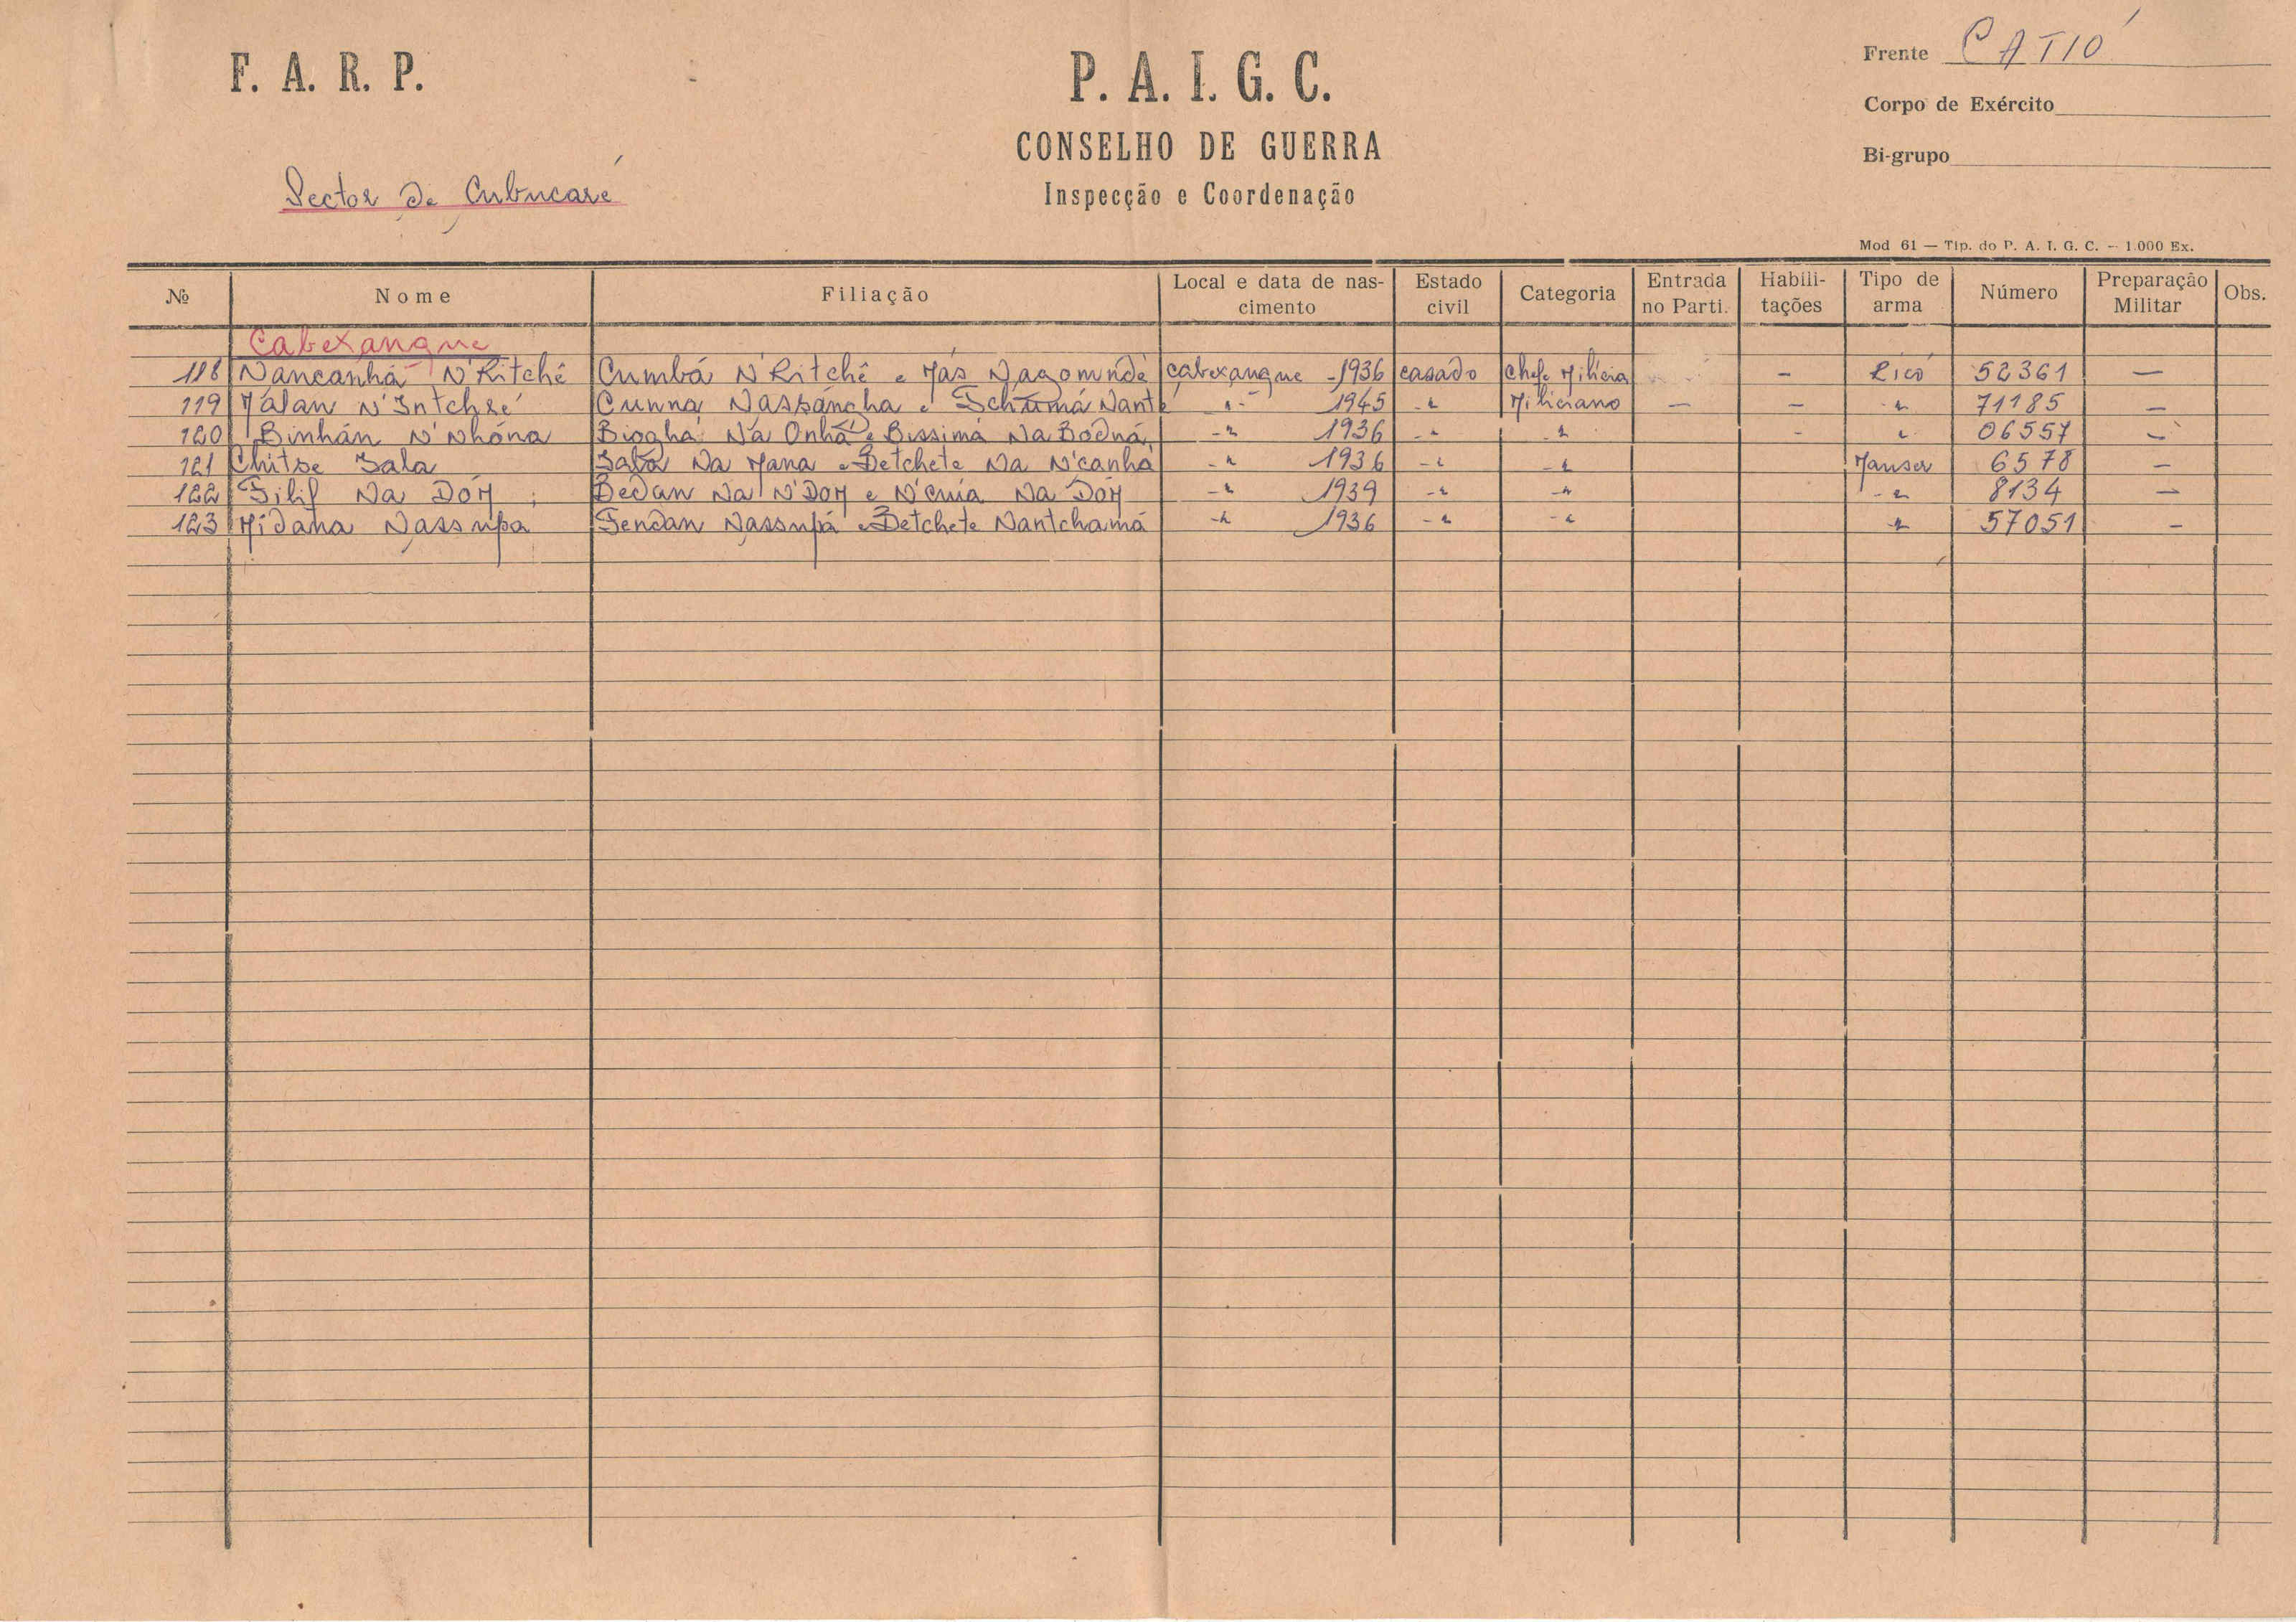 F. A. R. P.
P. A. I. G. C.
CONSELHO DE GUERRA
Inspecção e Coordenação
Frente CATIÓ
Corpo de Exército
Bi-grupo
Sector de Cubucaré
Mod 61 — Tip. do P. A. I. G. C. — 1.000 Ex.
№ Nome Filiação Local e data de nascimento Estado civil Categoria Entrada no Parti. Habilitações Tipo de arma Número Preparação Militar Obs.
Cabexanque
118 Nancanhá N'Ritchê Cumbá N'Ritchê e Más Nagomndé cabexanque - 1936 casado Chefe Milicia - Rico 52361 —
119 Malan N'Intchsé Cunna Nassancha e Tchamá Nanté -"- 1945 -" Miliciano — - -" 71185 —
120 Binhán N'Nhóna Biogha Na Onhá e Bissimá Na Bodná -" 1936 -" -" - " 06557 —
121 Chitse Sala Sala Na Mana e Betchete Na N'canhá -" 1936 -" -" Mauser 6578 —
122 Filif Na Dóm Bedan Na N'Dom e N'Cuia Na Dóm -" 1939 -" -" -" 8134 —
123 Midana Nassupa Tendan Nassupá e Betchete Nantchamá -" 1936 -" -" -" 57051 -